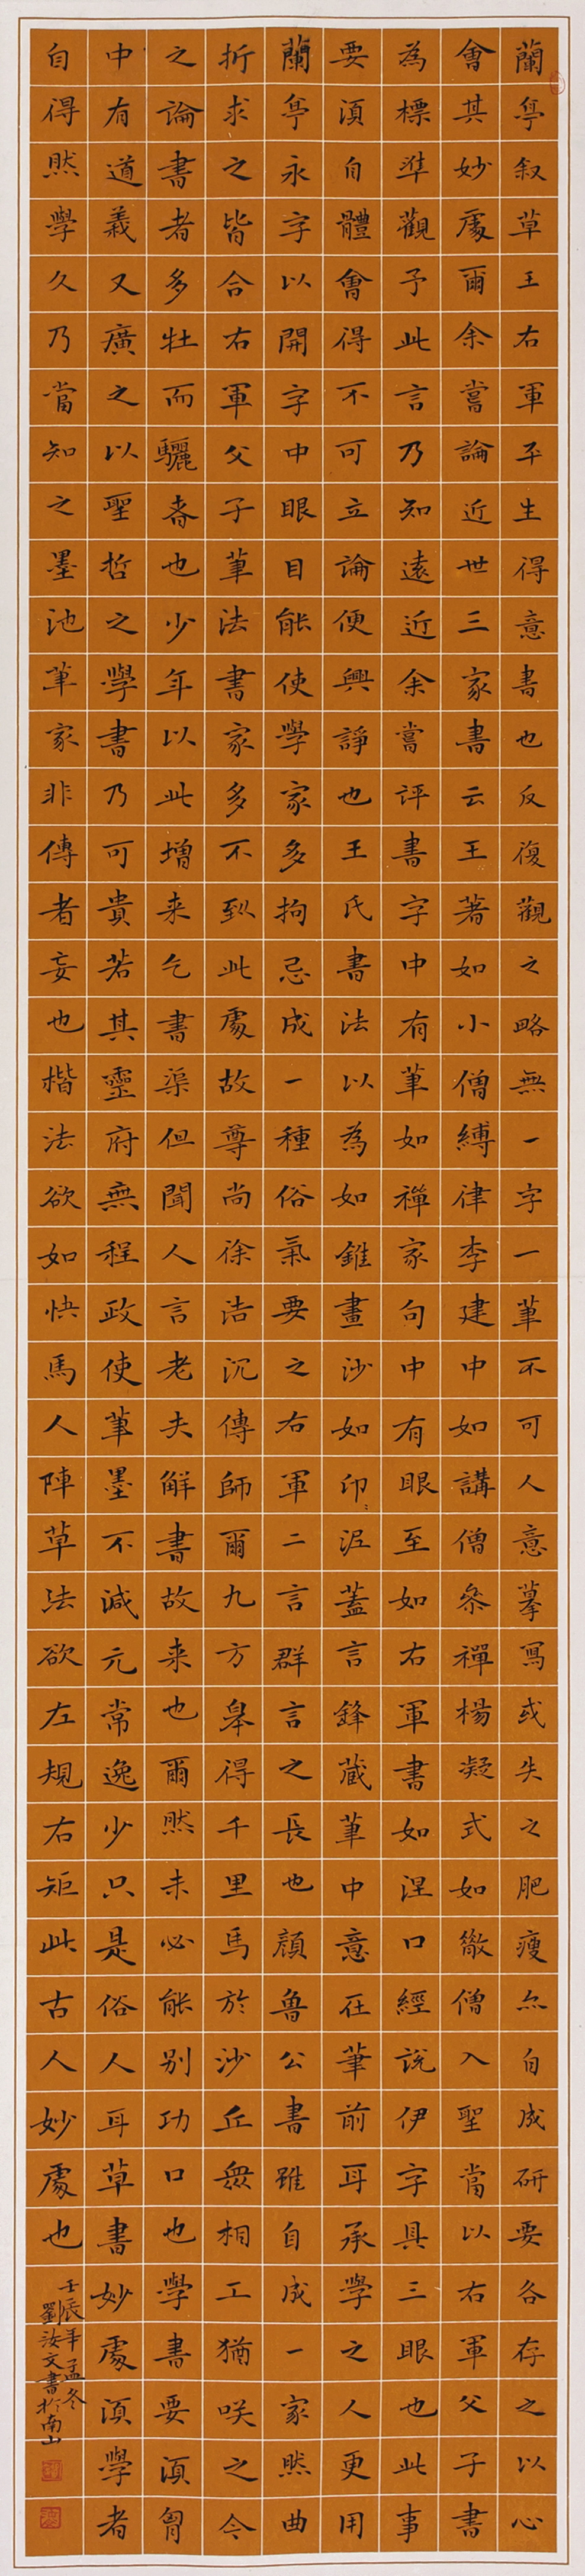 蘭亭叙草王右軍平生得意書也反復觀之略無一字一筆不可人意摹寫或失之肥瘦亦自成研要各存之以心
會其妙處爾余嘗論近世三家書云王著如小僧縛律李建中如講僧參禪楊凝式如散僧入聖當以右軍父子書
為標準觀予此言乃知遠近余嘗評書字中有筆如禪家句中有眼至如右軍書如涅口經說伊字具三眼也此事
要須自體會得不可立論便興諍也王氏書法以為如錐畫沙如印印泥蓋言鋒藏筆中意在筆前耳承學之人更用
蘭亭永字以開字中眼目能使學家多拘忌成一種俗氣要之右軍二言群言之長也顏魯公書雖自成一家然曲
折求之皆合右軍父子筆法書家多不到此處故尊尚徐浩沉傳師爾九方皋得千里馬於沙丘眾相工猶咲之今
之論書者多牡而驪者也少年以此增来乞書渠但聞人言老夫解書故来也爾然未必能别功口也學書要須胷
中有道義又廣之以聖哲之學書乃可貴若其靈府無程政使筆墨不減元常逸少只是俗人耳草書妙處須學者
自得然學久乃當知之墨池筆冢非傳者妄也楷法欲如快馬人陣草法欲左規右矩此古人妙處也
壬辰年孟冬
劉汝文書於南山